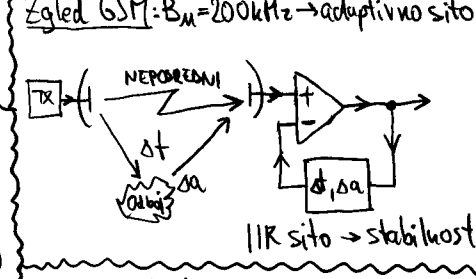 Zgled GSM: B_M=200kHz→adaptivno sito
TX
NEPOSREDNI
+
-
Δt
Δa
Odboj
Δt, Δa
IIR sito → stabilnost